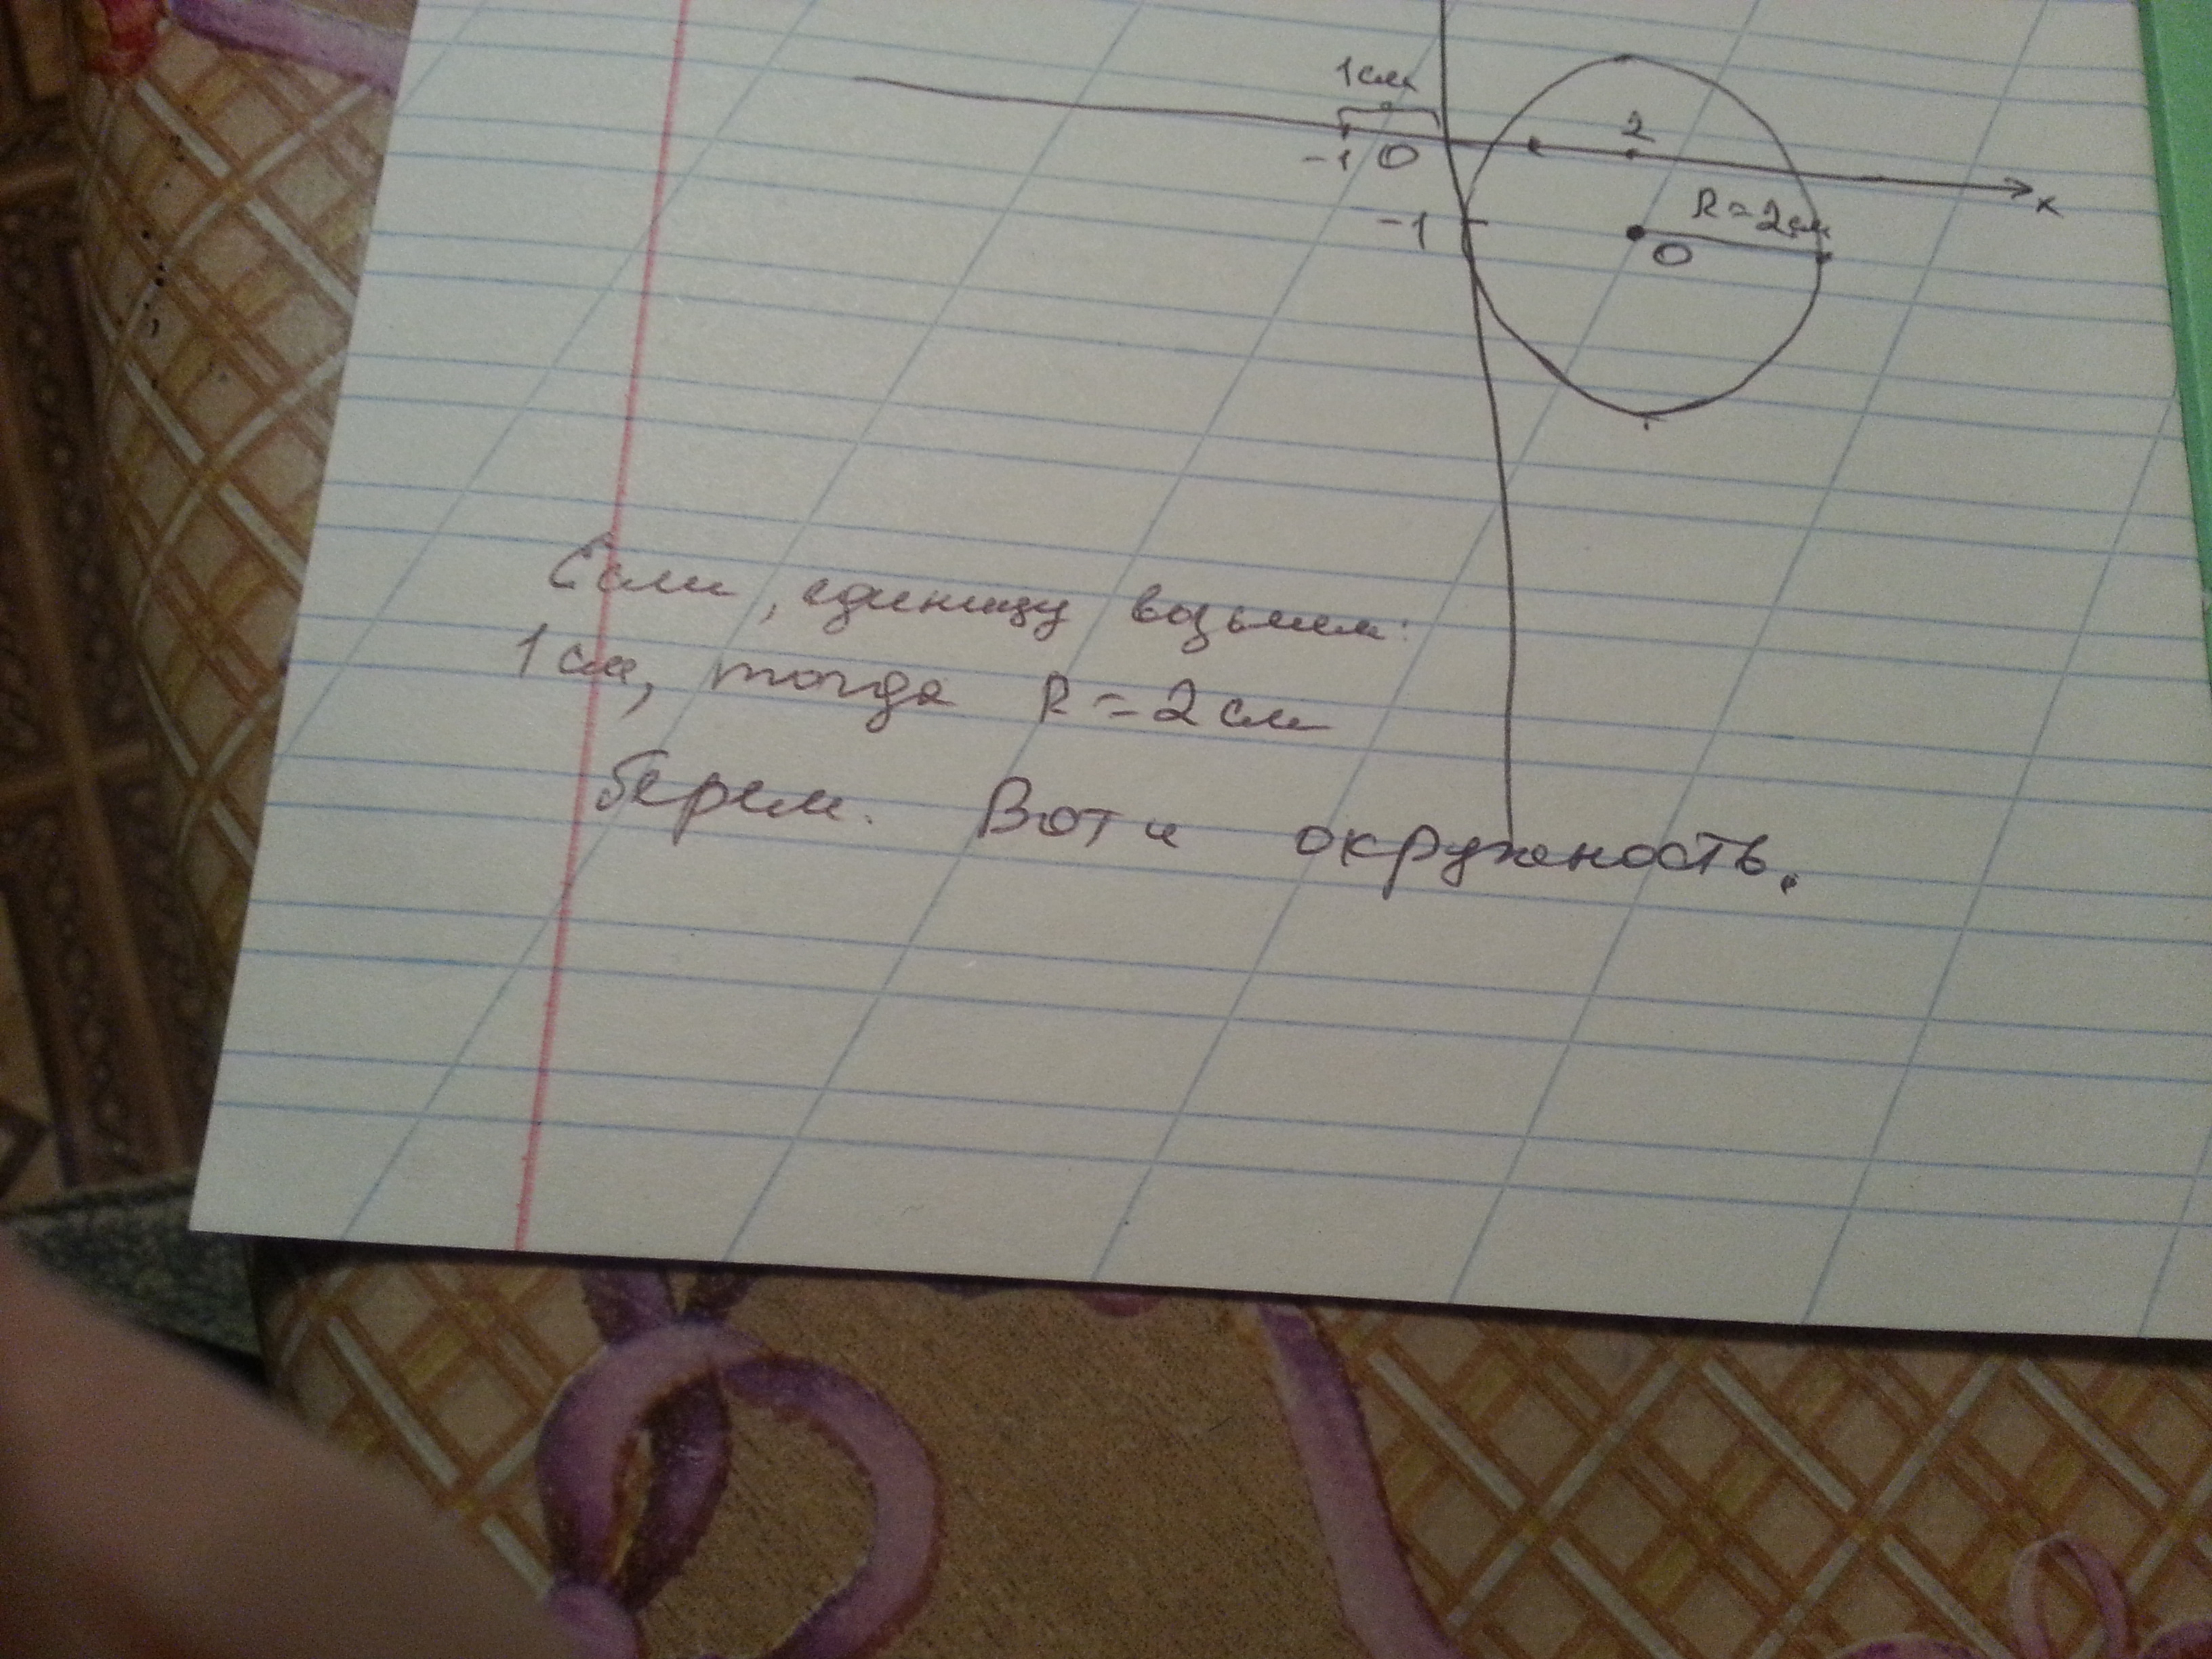 1 см
2
-1 0
x
R=2см
-1
0
Если, единицу возьмем:
1 см, тогда R=2 см
берем. Вот и окружность.